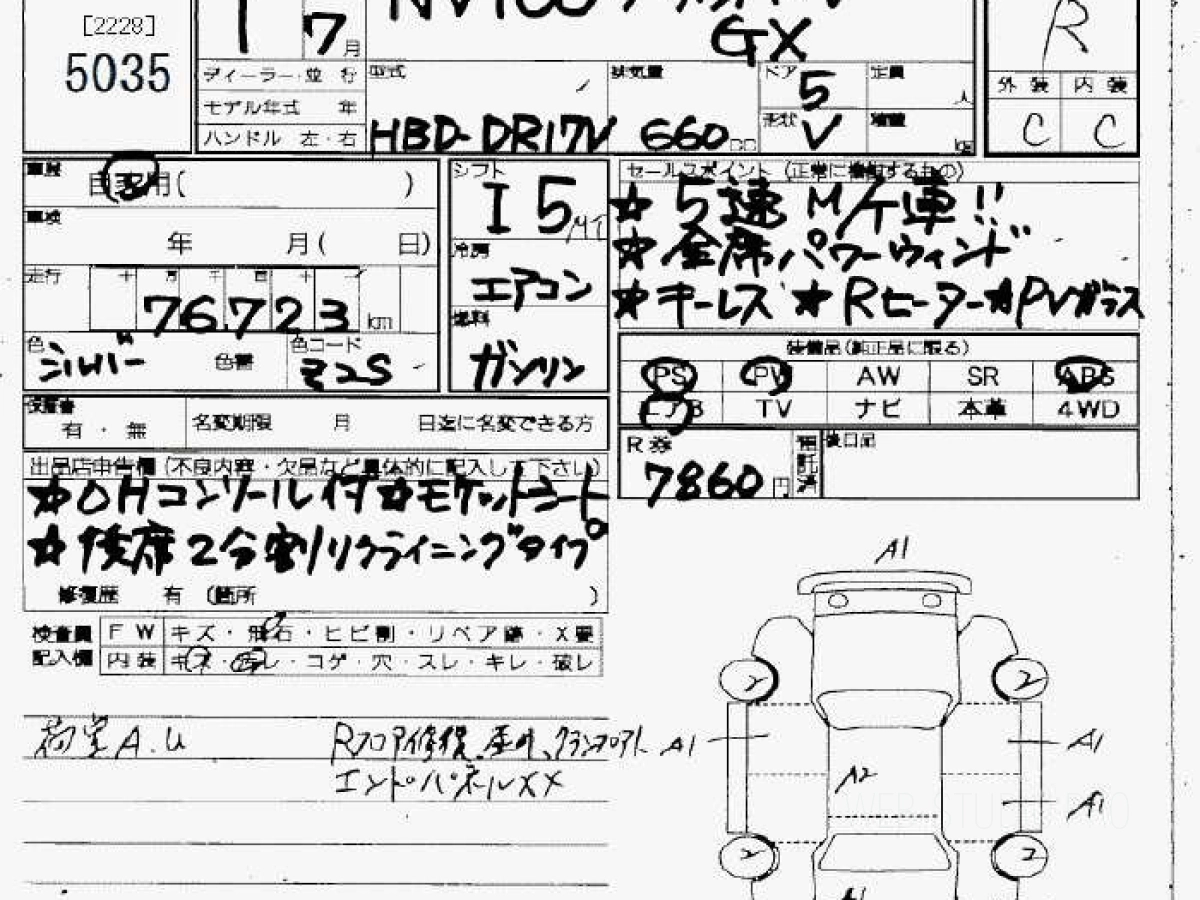 [2228]
5035
7月
GX
R
ディーラー・並 行
型式
排気量
ドア
5
定員
人
外 装
内 装
モデル年式 年
ハンドル 左・右
HBD-DR17V
660
cc
形状
V
積載
kg
C
C
車歴
自家用(
)
シフト
I 5 MT
セールスポイント (正常に機能するもの)
☆ 5速 M/T車!!
☆ 全席パワーウィンドー
☆ キーレス ☆ Rヒーター ☆ PVガラス
車検
年 月( 日)
冷房
エアコン
走行
十 万 千 百 十 一
76,723 km
燃料
ガソリン
色
シルバー
色替
色コード
Z2S
装備品(純正品に限る)
PS PW AW SR ABS
エアB TV ナビ 本革 4WD
保証書
有 ・ 無
名変期限 月 日迄に名変できる方
R券
7860円
預託済
後日品
出品店申告欄 (不良内容・欠品など具体的に記入して下さい)
☆OHコンソール付 ☆モケットシート
☆後席2分割リクライニングタイプ
修復歴 有 (箇所 )
検査員
記入欄
FW キズ・飛石・ヒビ割・リペア跡・X要
内装 キズ・汚レ・コゲ・穴・スレ・キレ・破レ
荷室 A.U
Rフロア修復
エンドパネルXX
A1
2
2
A1
A1
A2
A1
2
2
A1